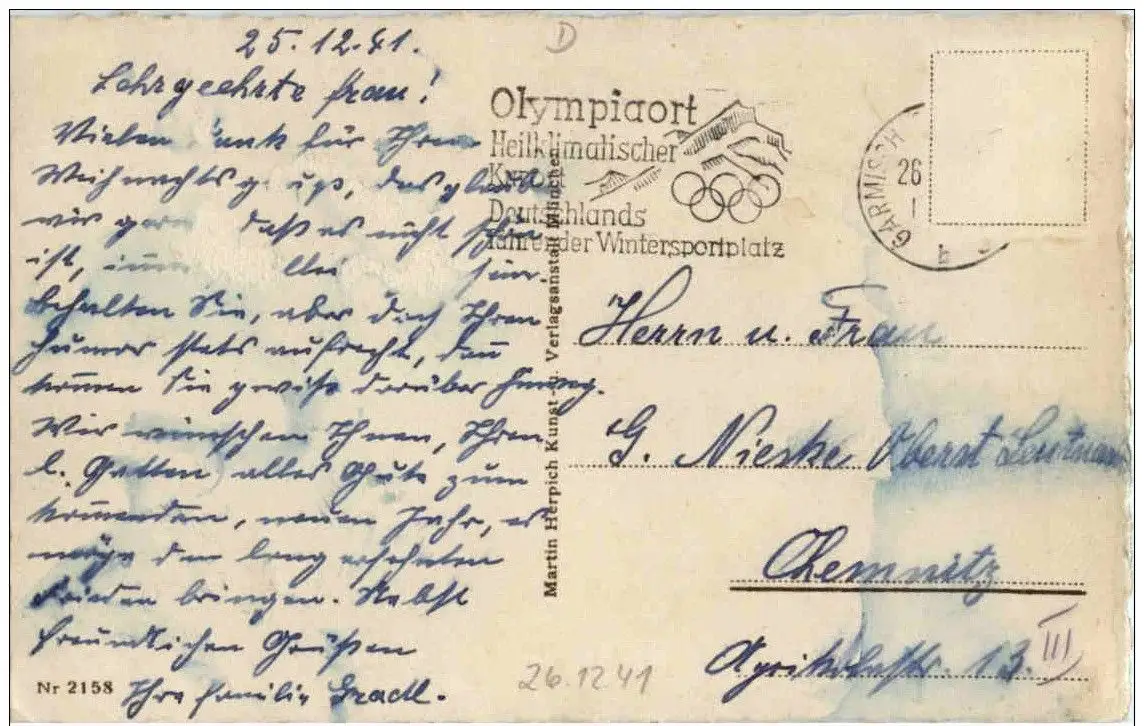 25.12.41.
Sehrgeehrte Frau!
Vielen Dank für Ihren
Weihnachtsgruß, das glauben
wir gern daß es nicht schön
ist, immer allein
behalten Sie, aber doch Ihren
Humor stets aufrecht, dann
kommen Sie gewiß darüber hinweg.
Wir wünschen Ihnen, Ihren
l. Gatten alles Gute zum
kommenden, neuen Jahr, es
möge den lang ersehnten
Frieden bringen. Nebst
freundlichen Grüßen
Ihre Familie
Nr 2158
D
Olympiaort
Heilklimatischer
Kurort
Deutschlands
führender Wintersportplatz
GARMISCH
26
Martin Herpich Kunst- u. Verlagsanstalt München
Herrn u. Frau
G. Nieske Oberst Leutnant
Chemnitz
Agrikolastr. 13. III
26.12 41